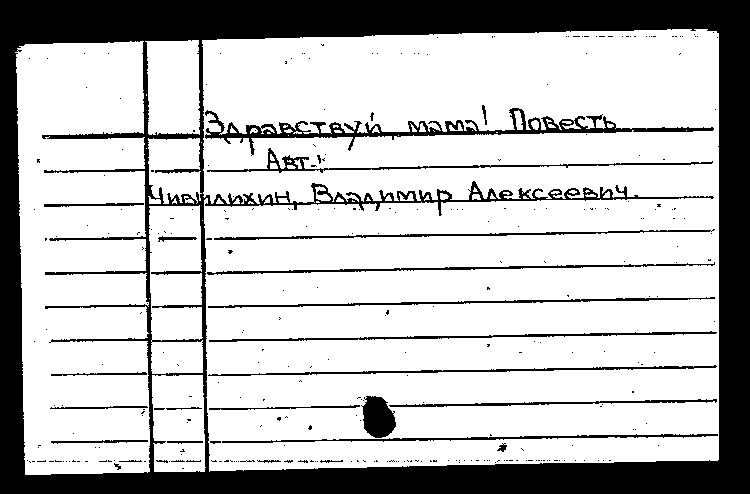 Здравствуй, мама! Повесть
Авт.:
Чивилихин, Владимир Алексеевич.